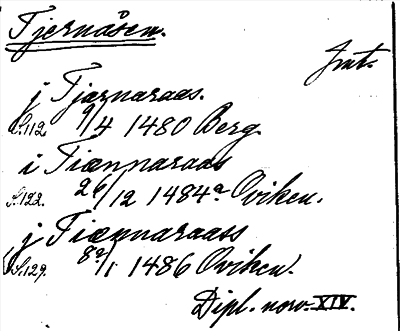 Tjernåsen.
Jmt.
j Tjærnaraas.
S.112. 9/4 1480 Berg.
i Tiænnaraas
S.122. 26/12 1484a Oviken.
j Tiænnaraass
S.129. 8a/1 1486 Oviken.
Dipl. norv. XIV.